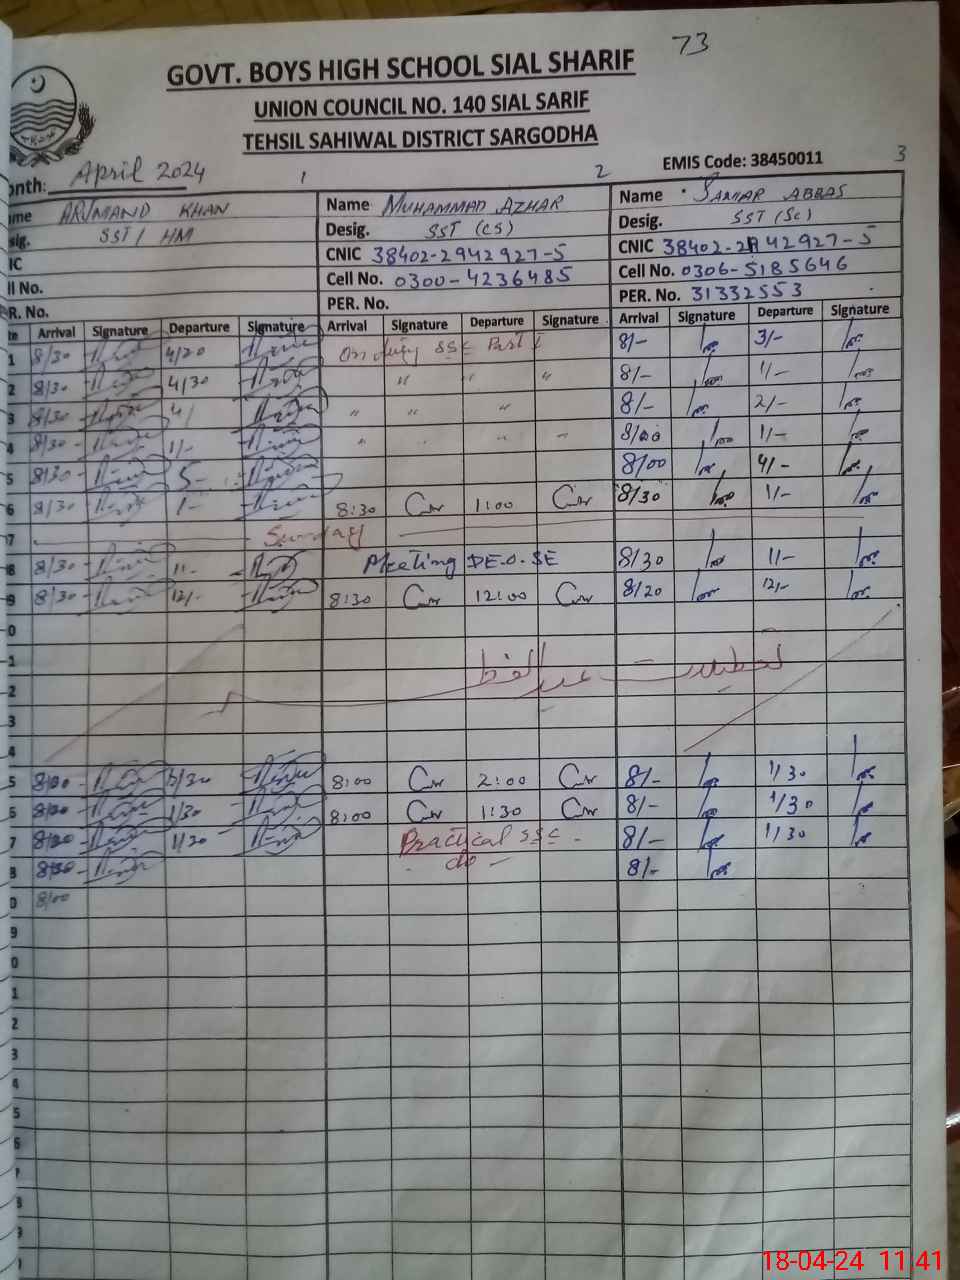 73
GOVT. BOYS HIGH SCHOOL SIAL SHARIF
UNION COUNCIL NO. 140 SIAL SARIF
TEHSIL SAHIWAL DISTRICT SARGODHA
EMIS Code: 38450011
onth: April 2024
1 2 3
ame ARJMAND KHAN Name MUHAMMAD AZHAR Name SAMAR ABBAS
sig. SST / HM Desig. SST (CS) Desig. SST (Sc)
IC CNIC 38402-2942927-5 CNIC 38402-2942927-5
ll No. Cell No. 0300-4236485 Cell No. 0306-5185646
R. No. PER. No. PER. No. 31332553
te Arrival Signature Departure Signature Arrival Signature Departure Signature Arrival Signature Departure Signature
1 8/30 4/20 On duty SSC Part I 8/- 3/-
2 8/30 4/30 " " " 8/- 1/-
3 8/30 4/ " " " 8/- 2/-
4 8/30 1/- " " " 8/00 1/-
5 8/30 5- 8/00 4/-
6 8/30 1- 8:30 1:00 8/30 1/-
7 Sunday
8 8/30 11- Meeting DE-O-SE 8/30 11-
9 8/30 12/- 8:30 12:00 8/20 12/-
0
1 تعطیلات عیدالفطر
2
3
4
5 3/30 8:00 2:00 8/- 1/30
6 1/30 8:00 1:30 8/- 1/30
7 1/20 Practical SSC - 8/- 1/30
8 do - 8/-
0 8/00
9
0
1
2
3
4
5
6
8
9
1
18-04-24 11:41